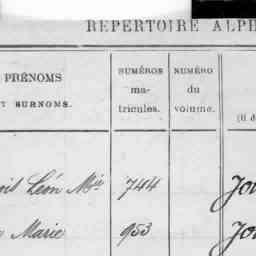 RÉPERTOIRE ALPH
PRÉNOMS
T SURNOMS.
NUMÉROS
ma-
tricules.
NUMÉRO
du
volume.
Léon Mie 744
Marie 953